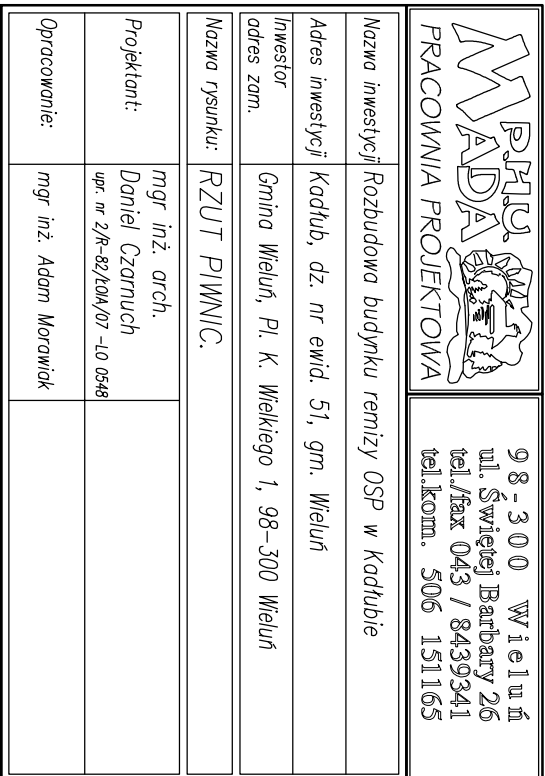 P.H.U.
MADA
PRACOWNIA PROJEKTOWA
98-300 Wieluń
ul. Świętej Barbary 26
tel./fax 043 / 8439341
tel.kom. 506 151165
Nazwa inwestycji Rozbudowa budynku remizy OSP w Kadłubie
Adres inwestycji Kadłub, dz. nr ewid. 51, gm. Wieluń
Inwestor
adres zam. Gmina Wieluń, Pl. K. Wielkiego 1, 98-300 Wieluń
Nazwa rysunku: RZUT PIWNIC.
Projektant: mgr inż. arch.
Daniel Czarnuch
upr. nr 2/R-82/ŁOIA/07 -LO 0548
Opracowanie: mgr inż. Adam Morawiak